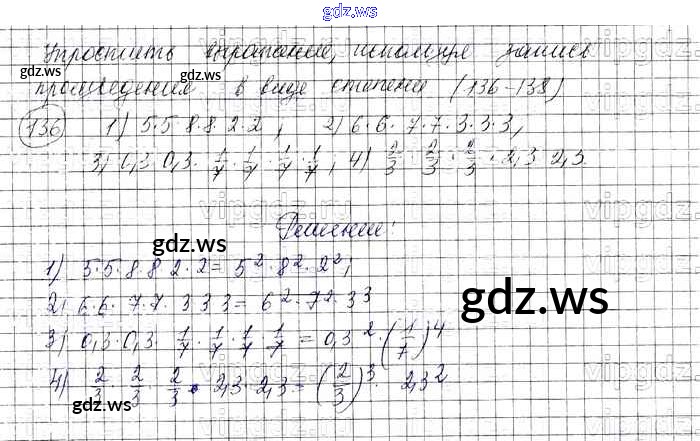 gdz.ws
Упростить выражение, используя запись
произведения в виде степени (136-138)
136 1) 5·5·8·8·2·2; 2) 6·6·7·7·3·3·3,
3) 0,3·0,3·1/7·1/7·1/7·1/7; 4) 2/3·2/3·2/3·2,3·2,3
Решение:
1) 5·5·8·8·2·2 = 5²·8²·2²;
2) 6·6·7·7·3·3·3 = 6²·7²·3³
3) 0,3·0,3·1/7·1/7·1/7·1/7 = 0,3²·(1/7)⁴
4) 2/3·2/3·2/3·2,3·2,3 = (2/3)³·2,3²
gdz.ws
gdz.ws
gdz.ws
gdz.ws
vipgdz.ru